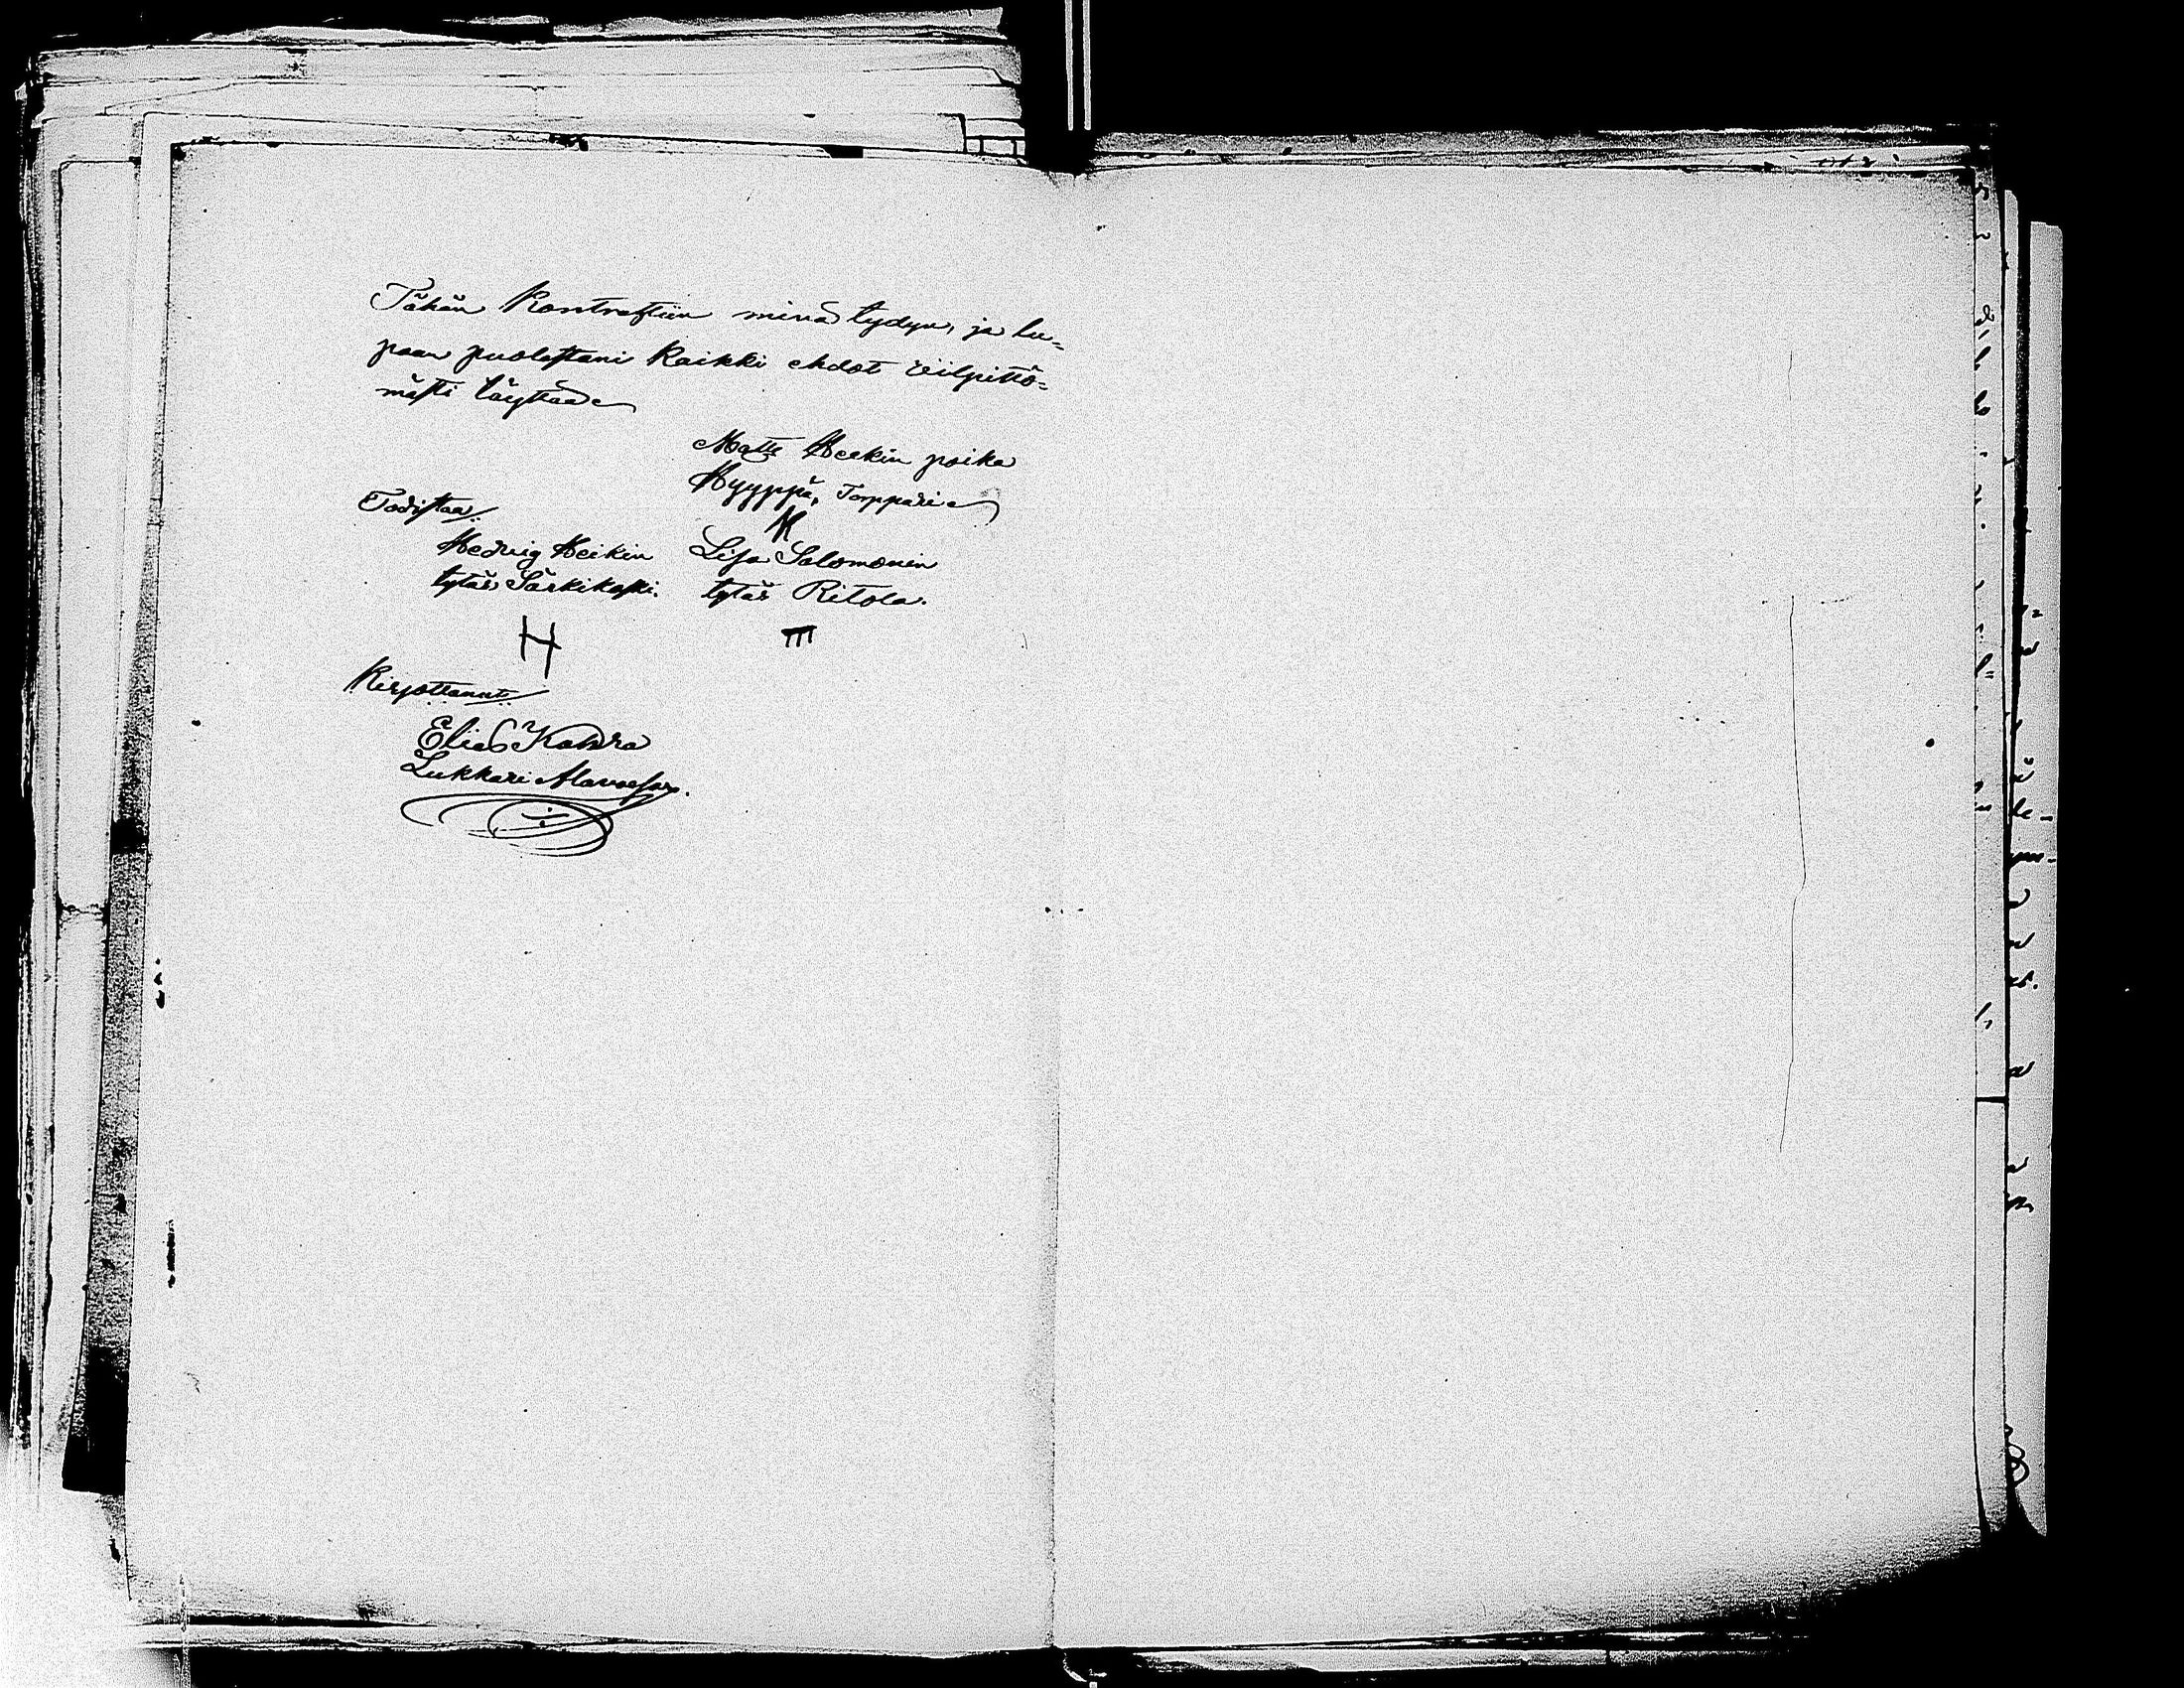 Tähän Kontrahtiin minä tydyn, ja lu=
paan puolestani kaikki ehdot viilpittö=
mästi täyttää
Matts Heekin poika
Hyyppä, Torppari
Todistaa
Hedvig Heikin
tytär Särkikoski.
Lisa Salomonin
tytär Ritola.
H
III
Kirjottanut
Elias Kahra
Lukkari Alavuesta.